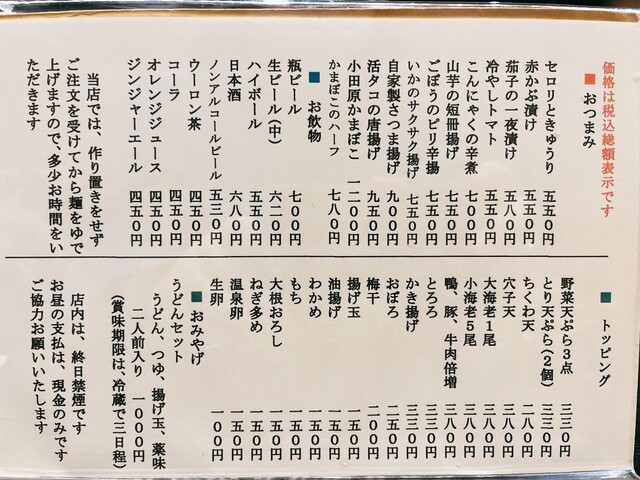 価格は税込総額表示です
■おつまみ
セロリときゅうり 五五〇円
赤かぶ漬け 五五〇円
茄子の一夜漬け 五八〇円
冷やしトマト 五五〇円
こんにゃくの辛煮 七〇〇円
山芋の短冊揚げ 七五〇円
ごぼうのピリ辛揚 七五〇円
いかのサクサク揚げ 七五〇円
自家製さつま揚げ 九〇〇円
活タコの唐揚げ 九五〇円
小田原かまぼこ 一二〇〇円
かまぼこのハーフ 七八〇円
■ お飲物
瓶ビール 七〇〇円
生ビール(中) 六二〇円
ハイボール 五五〇円
日本酒 六八〇円
ノンアルコールビール 五三〇円
ウーロン茶 四五〇円
コーラ 四五〇円
オレンジジュース 四五〇円
ジンジャーエール 四五〇円
当店では、作り置きをせず
ご注文を受けてから麺をゆで
上げますので、多少お時間をい
ただきます
■ トッピング
野菜天ぷら3点 三三〇円
とり天ぷら(2個) 三三〇円
ちくわ天 二八〇円
穴子天 三八〇円
大海老1尾 三八〇円
小海老5尾 三八〇円
鴨、豚、牛肉倍増 三八〇円
とろろ 三三〇円
かき揚げ 三三〇円
おぼろ 二五〇円
梅干 二〇〇円
揚げ玉 一五〇円
油揚げ 一五〇円
わかめ 一五〇円
もち 一五〇円
大根おろし 一五〇円
ねぎ多め 一五〇円
温泉卵 一五〇円
生卵 一〇〇円
■おみやげ
うどんセット
うどん、つゆ、揚げ玉、薬味
二人前入り 一〇〇〇円
(賞味期限は、冷蔵で三日程)
店内は、終日禁煙です
お昼の支払は、現金のみです
ご協力お願いいたします